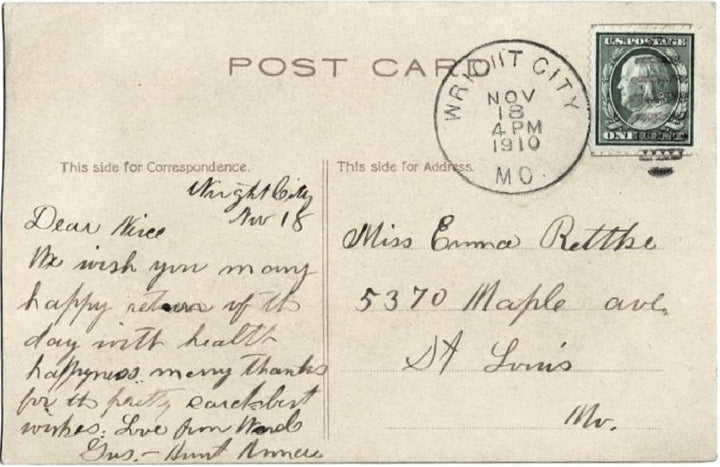 POST CARD
WRIGHT CITY
NOV
18
4 PM
1910
MO.
U.S. POSTAGE
ONE CENT
This side for Correspondence.
Wright City
Nov 18
Dear Niece
We wish you many
happy return of th
day with health
happyness. meny thanks
for th pretty card best
wishes. Love from
Gus. - Aunt
This side for Address.
Miss Emma Rethke
5370 Maple ave.
St Louis
Mo.